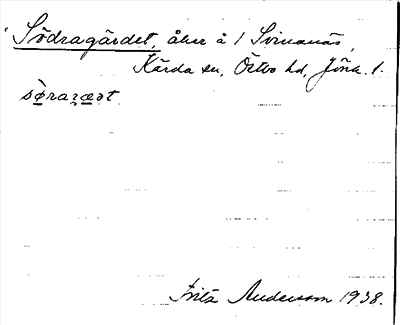 Södragärdet, åker å 1 Svinanäs,
Kärda sn, Östbo hd, Jönk. l.
sø̀raɀæət
Fritz Anderson 1938.